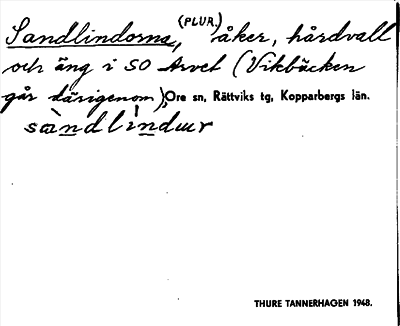 Sandlindorna, (PLUR.) åker, hårdvall
och äng i SO Arvet (Vikbäcken
går därigenom), Ore sn, Rättviks tg, Kopparbergs län.
sàndlìndωr
THURE TANNERHAGEN 1948.